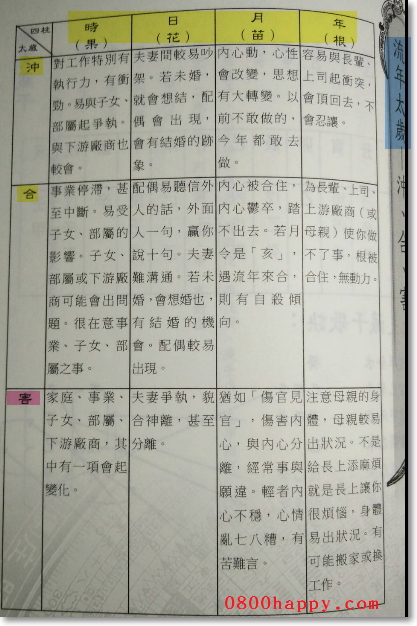 流年太歲 沖、合、害
四柱
太歲
時(果)
日(花)
月(苗)
年(根)
沖
對工作特別有
執行力，有衝
勁。易與子女、
部屬起爭執。
與下游廠商也
較會。
夫妻間較易吵
架。若未婚，
就會想結，配
偶會出現，
會有結婚的跡
象。
內心動，心性
會改變，思想
有大轉變。以
前不敢做的，
今年都敢去
做。
容易與長輩、
上司起衝突，
會頂回去，不
會忍讓。
合
事業停滯，甚
至中斷。易受
子女、部屬的
影響。子女、
部屬或下游廠
商可能會出問
題。很在意事
業、子女、部
屬之事。
配偶易聽信外
人的話，外面
人一句，贏你
說十句。夫妻
難溝通。若未
婚，會想婚也，
有結婚的機
會。配偶較易
出現。
內心被合住，
內心鬱卒，踏
不出去。若月
令是「亥」，
遇流年來合，
則有自殺傾
向。
為長輩、上司、
上游廠商（或
母親）使你做
不了事，根被
合住，無動力。
害
家庭、事業、
子女、部屬、
下游廠商，其
中有一項會起
變化。
夫妻爭執，貌
合神離，甚至
分離。
猶如「傷官見
官」，傷害內
心，與內心分
離，經常事與
願違。輕者內
心不穩，心情
亂七八糟，有
苦難言。
注意母親的身
體，母親較易
出狀況。不是
給長上添麻煩
就是長上讓你
很煩惱，身體
易出狀況。有
可能搬家或換
工作。
0800happy.com